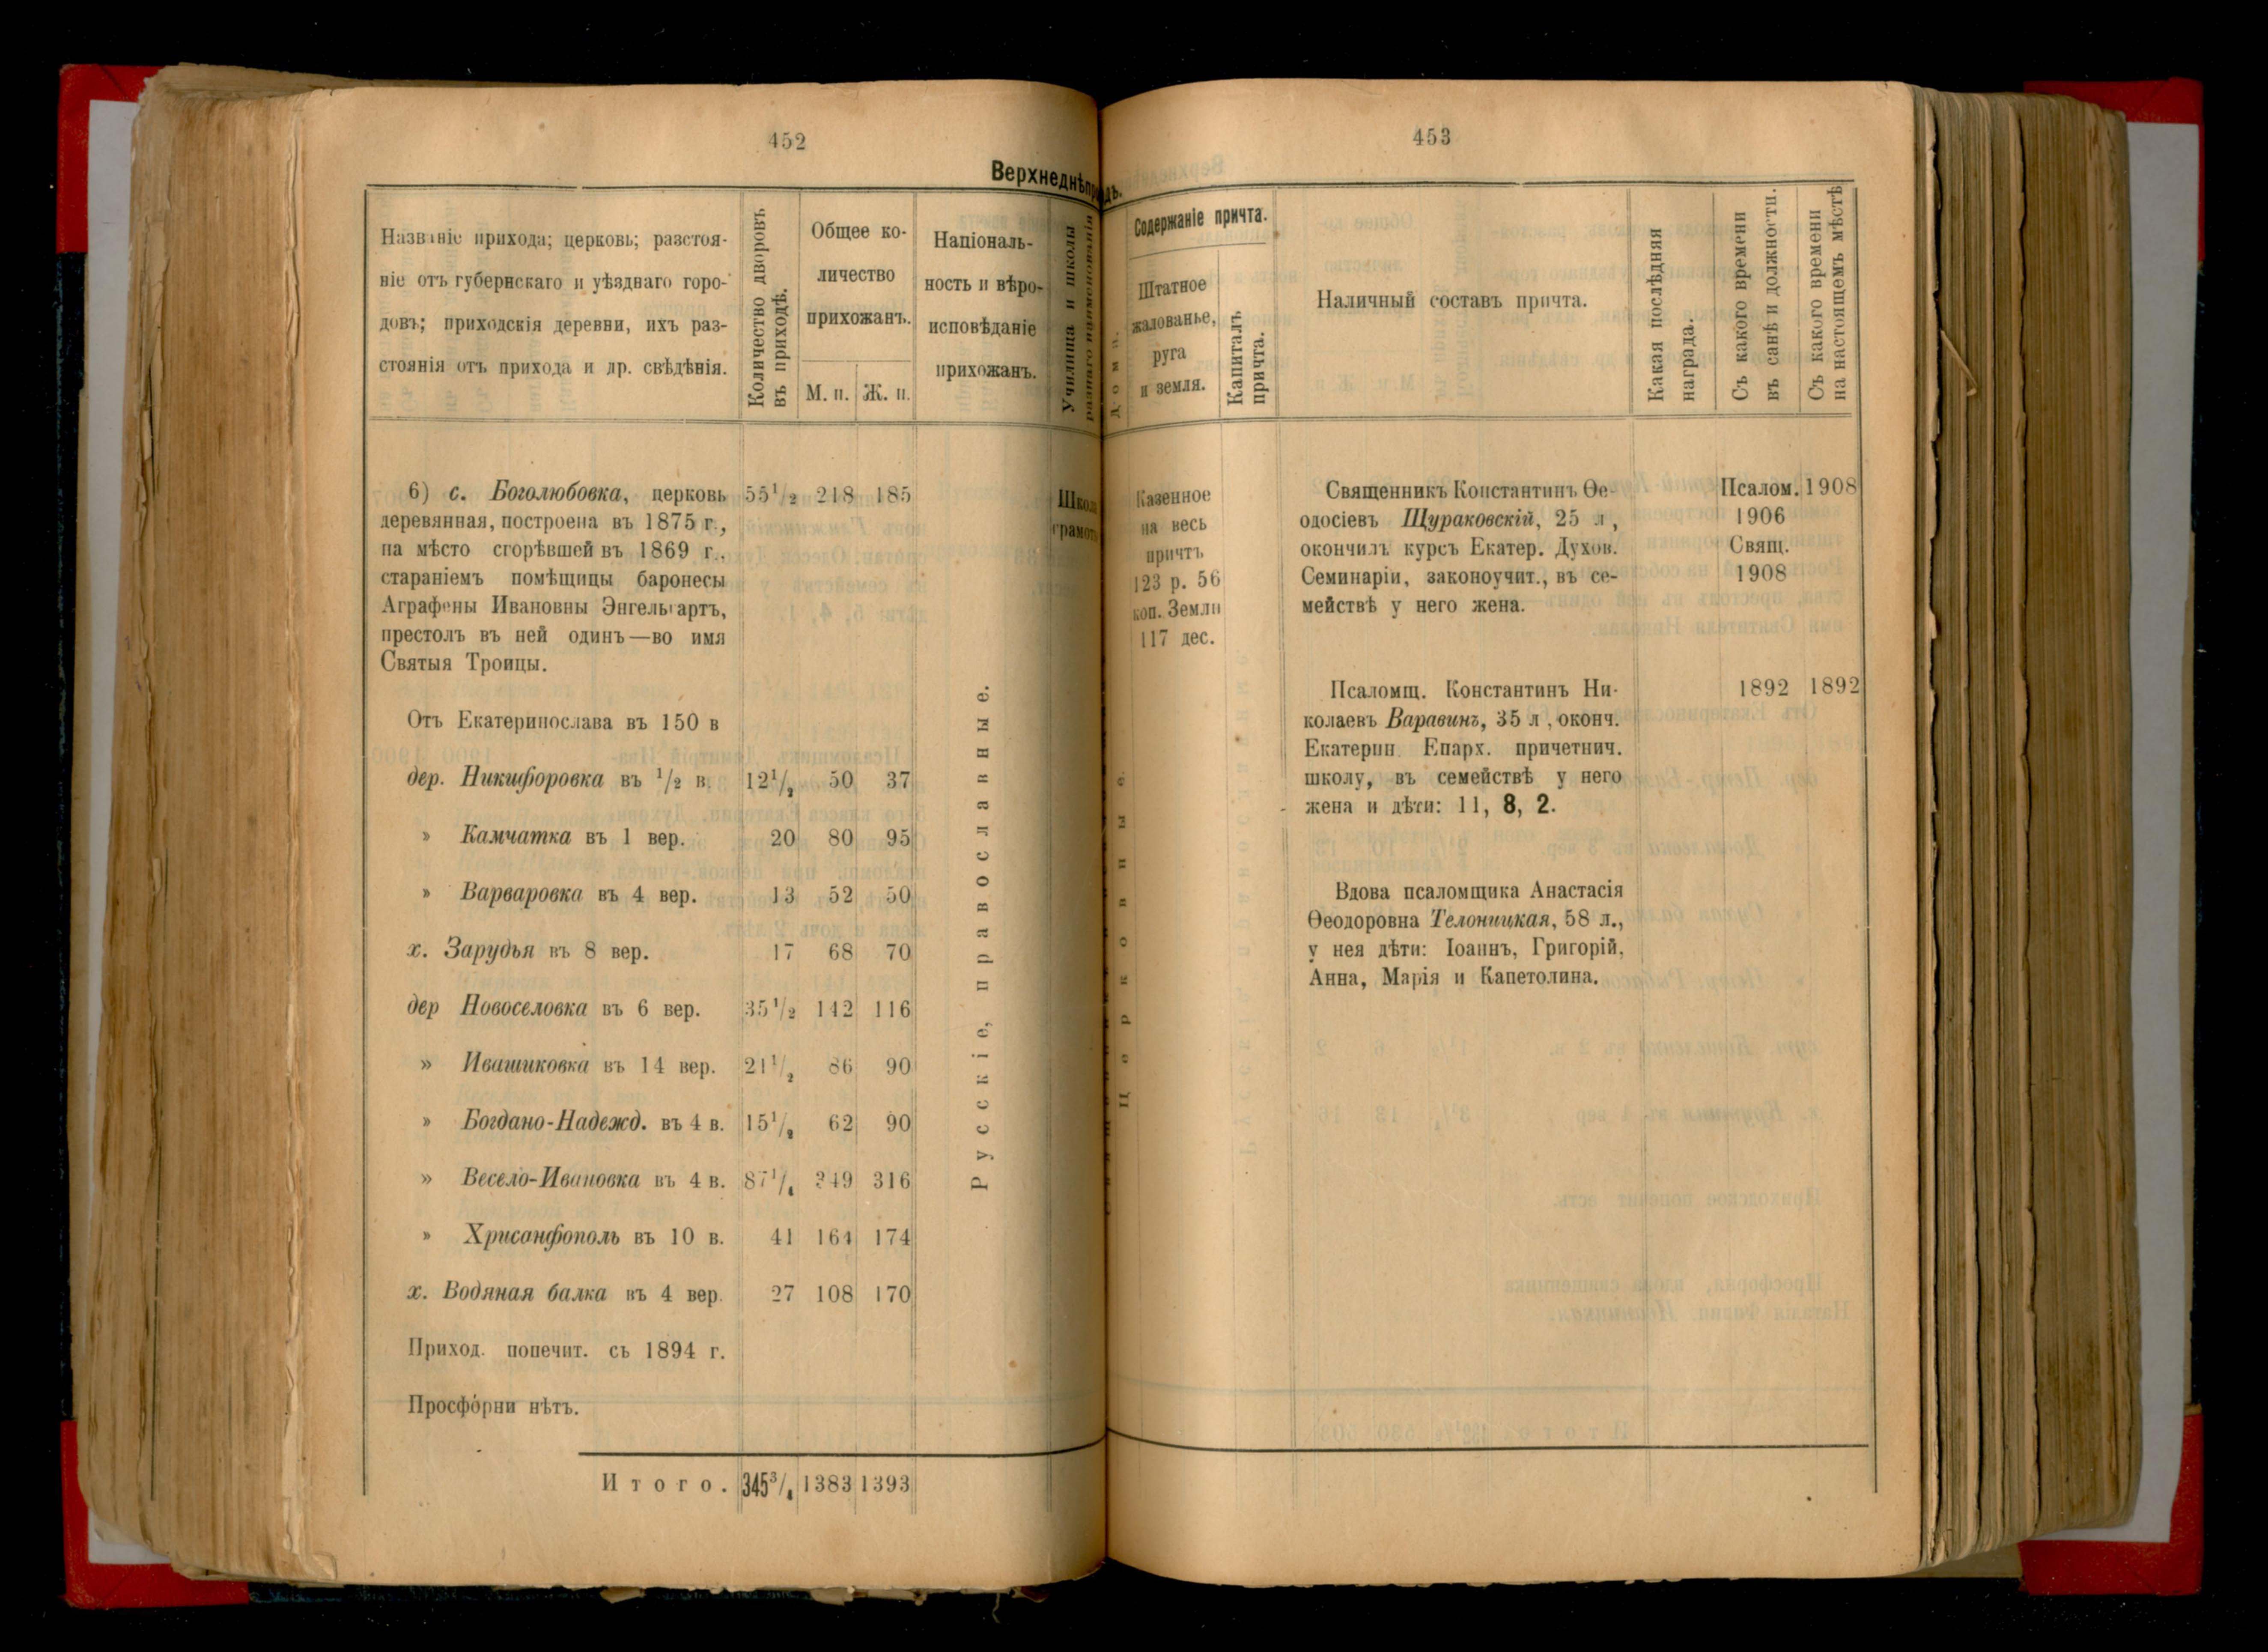 452
Верхнеднѣпро
Названіе прихода; церковь; разстоя-
ніе отъ губернскаго и уѣзднаго горо-
довъ; приходскія деревни, ихъ раз-
стоянія отъ прихода и др. свѣдѣнія.
Количество дворовъ
въ приходѣ.
Общее ко-
личество
прихожанъ.
М. п. Ж. п.
Націоналъ-
ность и вѣро-
исповѣданіе
прихожанъ.
Училища и школы
разнаго наименованія
6) с. Боголюбовка, церковь 55¹/₂ 218 185
деревянная, построена въ 1875 г.,
на мѣсто сгорѣвшей въ 1869 г.,
стараніемъ помѣщицы баронесы
Аграфены Ивановны Энгельгартъ,
престолъ въ ней одинъ—во имя
Святыя Троицы.
Школа
грамоты
Отъ Екатеринослава въ 150 в
дер. Никифоровка въ ¹/₂ в. 12¹/₂ 50 37
» Камчатка въ 1 вер. 20 80 95
» Варваровка въ 4 вер. 13 52 50
х. Зарудья въ 8 вер. 17 68 70
дер Новоселовка въ 6 вер. 35¹/₂ 142 116
» Ивашиковка въ 14 вер. 21¹/₂ 86 90
» Богдано-Надежд. въ 4 в. 15¹/₂ 62 90
» Весело-Ивановка въ 4 в. 87¹/₄ 349 316
» Хрисанфополь въ 10 в. 41 164 174
х. Водяная балка въ 4 вер. 27 108 170
Приход. попечит. съ 1894 г.
Просфорни нѣтъ.
Русскіе, православные.
Итого. 345³/₄ 1383 1393
453
дъ.
Дома.
Содержаніе причта.
Штатное
жалованье,
руга
и земля.
Капиталъ
причта.
Наличный составъ причта.
Какая послѣдняя
награда.
Съ какого времени
въ санѣ и должности.
Съ какого времени
на настоящемъ мѣстѣ
Церковные.
Казенное
на весь
причтъ
123 р. 56
коп. Земли
117 дес.
Священникъ Константинъ Ѳе- Псалом. 1908
одосіевъ Щураковскій, 25 л, 1906
окончилъ курсъ Екатер. Духов. Свящ.
Семинаріи, законоучит., въ се- 1908
мействѣ у него жена.
Псаломщ. Константинъ Ни- 1892 1892
колаевъ Варавинъ, 35 л, оконч.
Екатерин. Епарх. причетнич.
школу, въ семействѣ у него
жена и дѣти: 11, 8, 2.
Вдова псаломщика Анастасія
Ѳеодоровна Телоницкая, 58 л.,
у нея дѣти: Іоаннъ, Григорій,
Анна, Марія и Капетолина.